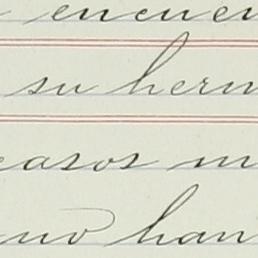 encuen
su herm
casos m
uno han